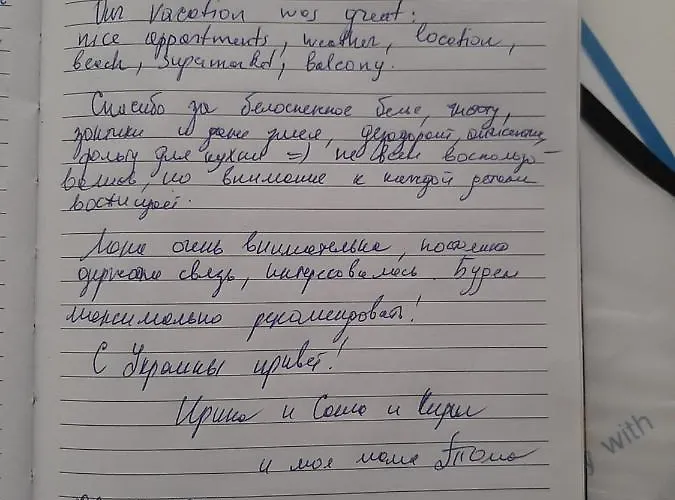 Our vacation was great:
nice appartments, weather, location,
beach, supamarket, balcony.
Спасибо за белоснежное белье, чистоту,
зонтики и даже змея, дезодорант,
фольгу для кухни =) не всем воспользо-
вались, но внимание к каждой детали
восхищает.
очень внимательна, постоянно
держала связь, интересовалась. Будем
максимально рекомендовать!
С Украины привет!
Ирина и Саша и
и моя мама
with